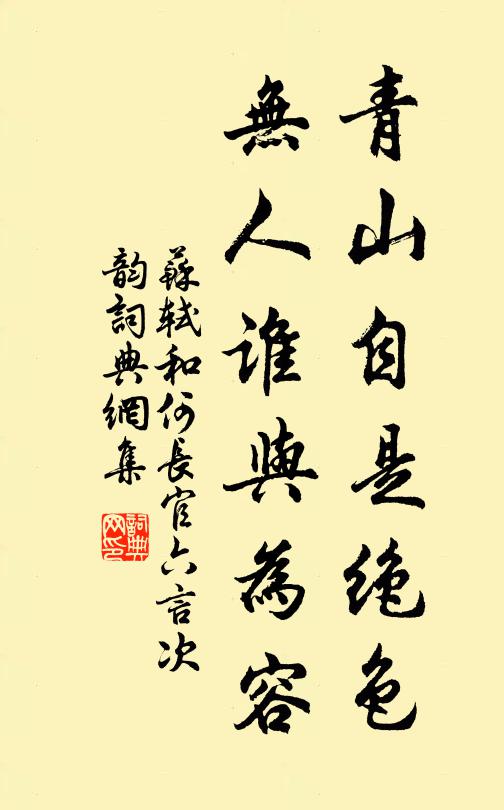 青山自是绝色
無人谁與為容
蘇軾和何長官六言次
韵詞典網集
詞典網印